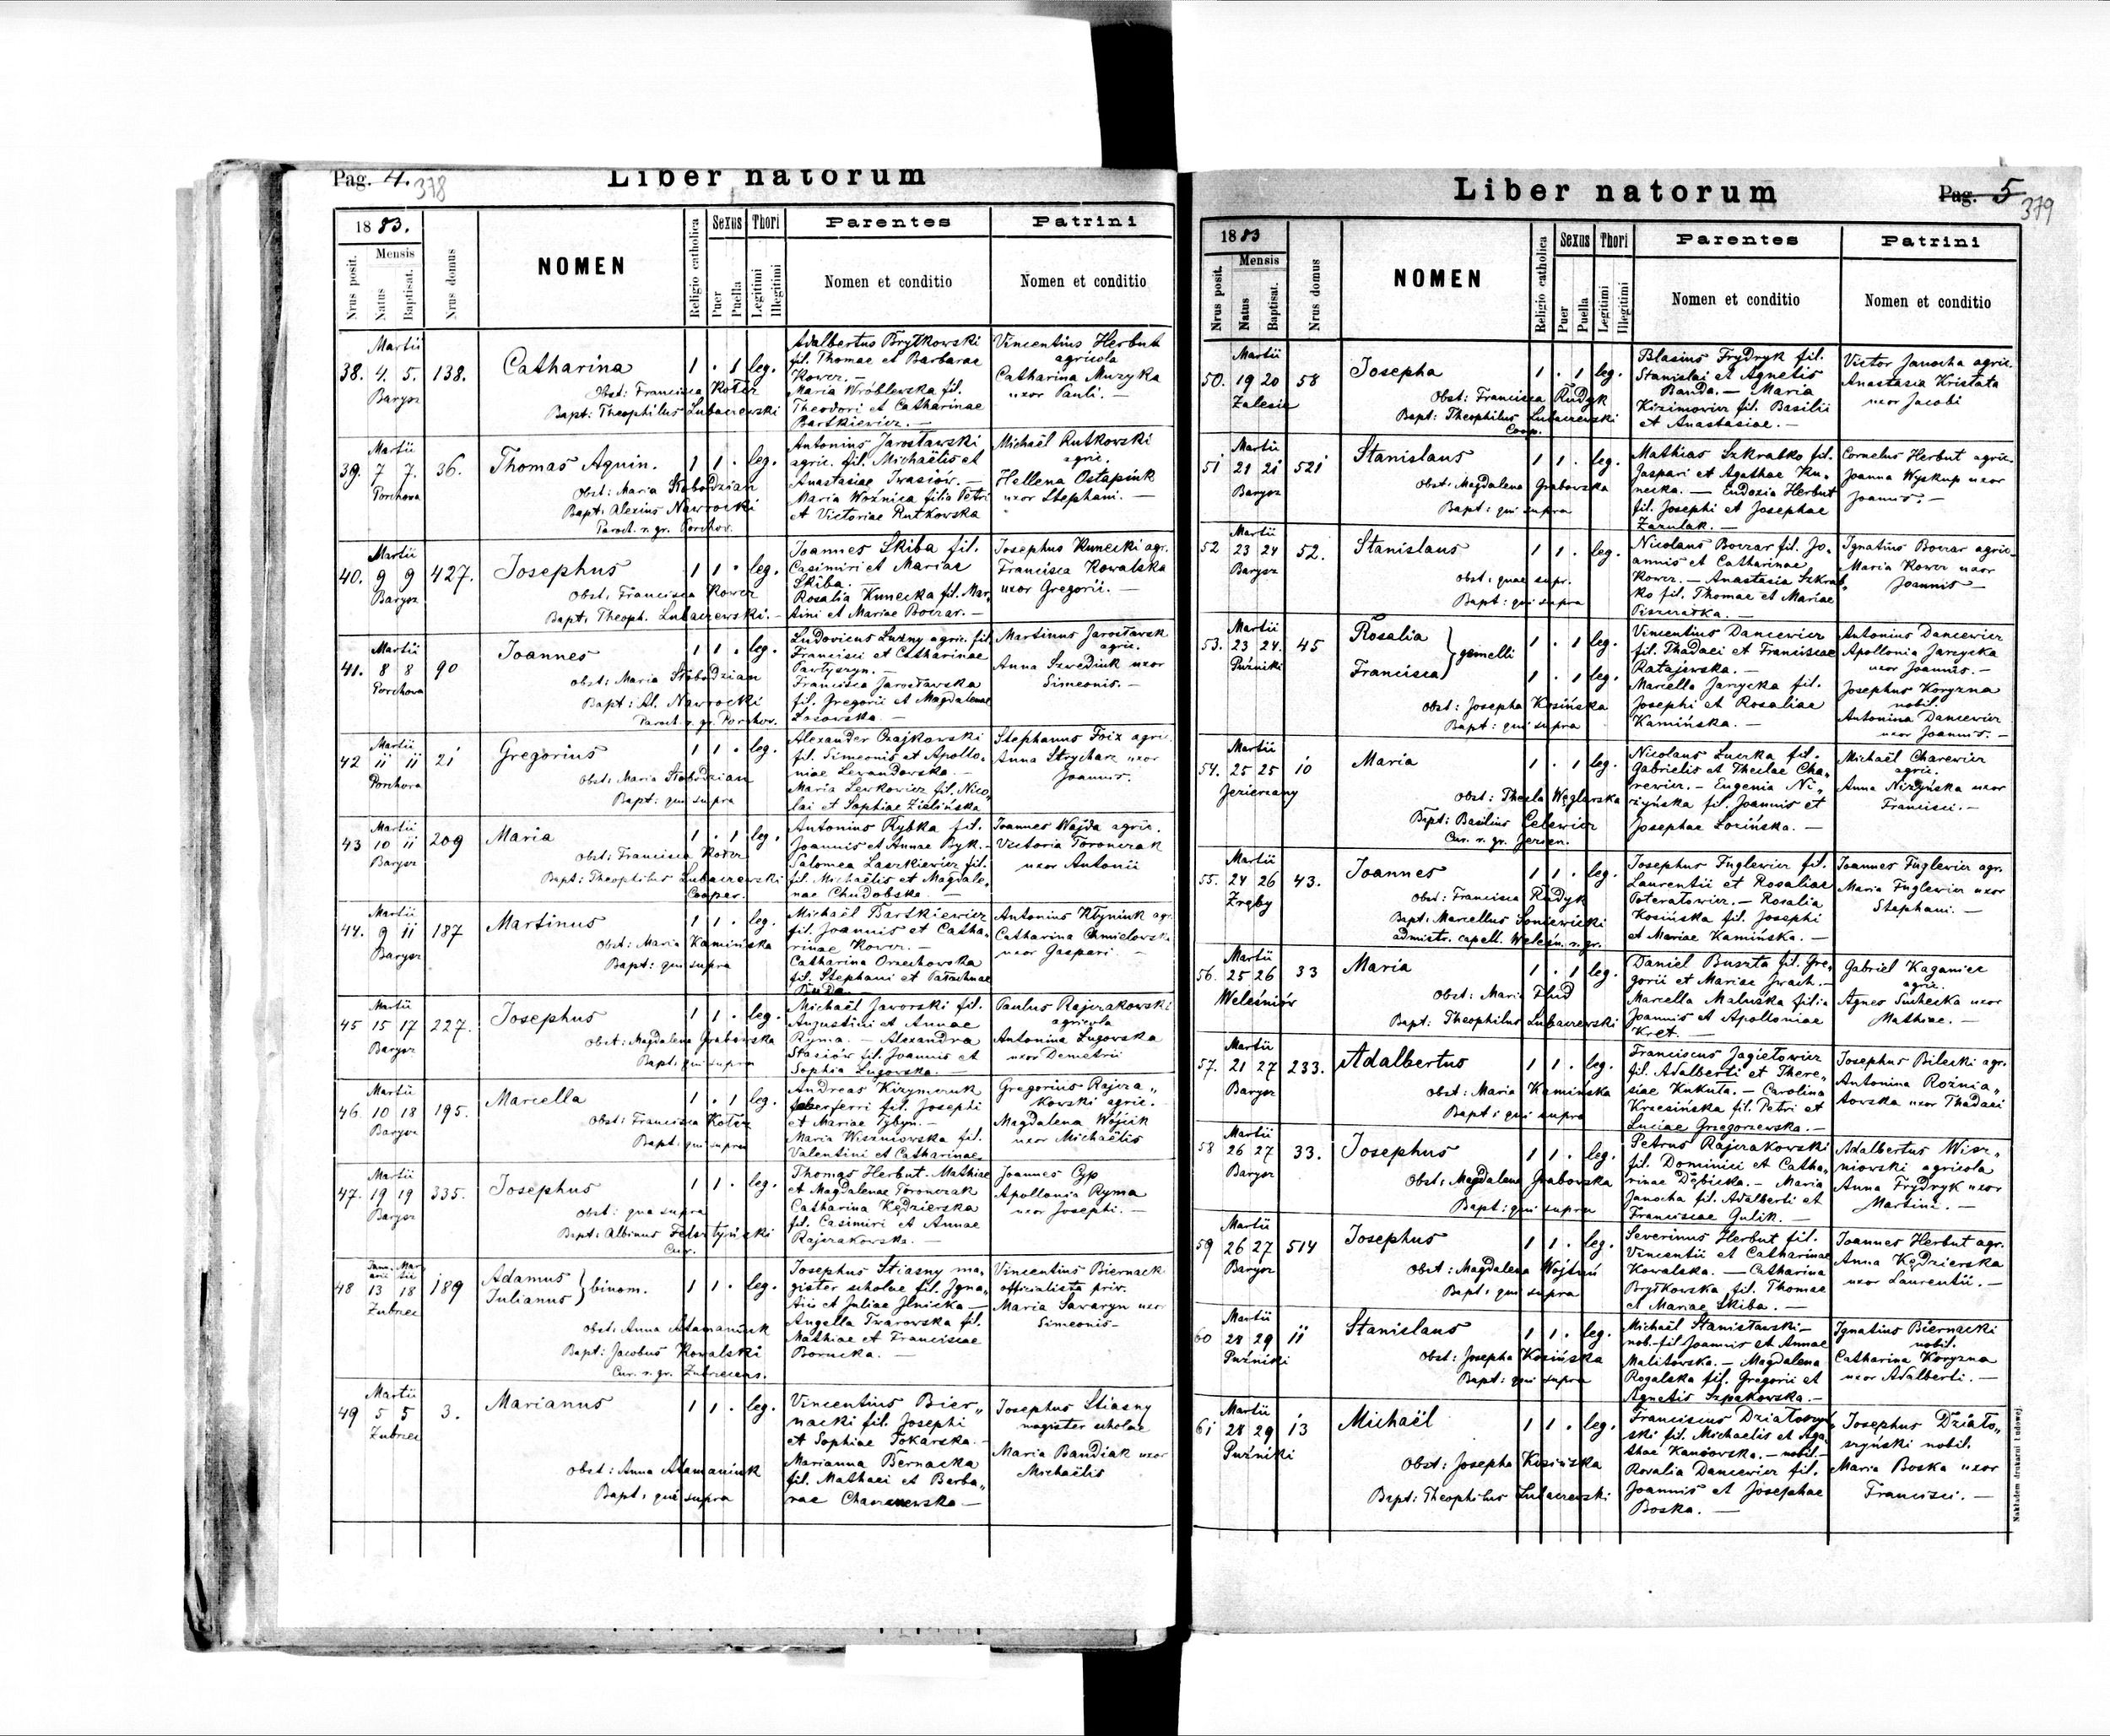 Pag. 4.
378
Liber natorum
1883.
Nrus posit.
Mensis
Natus
Baptisat.
Nrus domus
NOMEN
Religio catholica
Sexus
Puer
Puella
Thori
Legitimi
Illegitimi
Parentes
Nomen et conditio
Patrini
Nomen et conditio
Martii
38. 4. 5. 138.
Barysz
Catharina 1 . 1 leg.
Obst: Francisca Kotez
Bapt: Theophilus Lubaczewski
Adalbertus Brytkowski
fil. Thomae et Barbarae
Kowcz. —
Maria Wróblewska fil.
Theodori et Catharinae
Bartkiewicz. —
Vincentius Herbut
agricola
Catharina Muzyka
uxor Pauli. —
Martii
39. 7 7. 36.
Porchova
Thomas Aquin. 1 1 . leg.
Obst: Maria Słobodzian
Bapt: Alexius Nawrocki
Paroch. r. gr. Porchov.
Antonius Jarosławski
agric. fil. Michaëlis et
Anastasiae Iwasiów. —
Maria Woźnica filia Petri
et Victoriae Rutkowska
Michaël Rutkowski
agric.
Hellena Ostapiuk
uxor Stephani. —
Martii
40. 9 9 427.
Barysz
Josephus 1 1 . leg.
Obst: Francisca Kowcz
Bapt: Theoph. Lubaczewski. -
Joannes Skiba fil.
Casimiri et Mariae
Skiba. —
Rosalia Kunecka fil. Mar„
tini et Mariae Boczar. —
Josephus Kunecki agr.
Francisca Kowalska
uxor Gregorii. —
Martii
41. 8 8 90
Porchova
Joannes 1 1 . leg.
Obst: Maria Słobodzian
Bapt: Al. Nawrocki
Paroch. r. gr. Porchov.
Ludovicus Luzny agric. fil.
Francisci et Catharinae
Partyszyn. —
Francisca Jarosławska
fil. Gregorii et Magdalenae
Lasowska. —
Martinus Jarosławsk
agric.
Anna Szwediuk uxor
Simeonis. —
Martii
42 11 11 21
Porchova
Gregorius 1 1 . leg.
Obst: Maria Słobodzian
Bapt: qui supra
Alexander Czajkowski
fil. Simeonis et Apollo„
niae Lewandowska. —
Maria Lewkowicz fil. Nico„
lai et Sophiae Zielińska
Stephanus Foix agric.
Anna Strychar uxor
Joannis.
Martii
43 10 11 209
Barysz
Maria 1 . 1 leg.
Obst: Francisca Kotez
Bapt: Theophilus Lubaczewski
Cooper.
Antonius Rybka fil.
Joannis et Annae Byk. -
Salomea Laszkiewicz fil.
fil. Michaëlis et Magdale„
nae Chudobska. —
Joannes Wajda agric.
Victoria Toronczak
uxor Antonii
Martii
44. 9 11 187
Barysz
Martinus 1 1 . leg.
Obst: Maria Kamińska
Bapt: qui supra
Michaël Bartkiewicz
fil. Joannis et Catha„
rinae Kowcz. —
Catharina Orzechowska
fil. Stephani et Parachnae
Buda. —
Antonius Kłyniuk agr.
Catharina Chmielowska
uxor Gaspari. —
Martii
45 15 17 227.
Barysz
Josephus 1 1 . leg.
Obst: Magdalena Grabowska
Bapt: qui supra
Michaël Jaworski fil.
Augustini et Annae
Ryma. — Alexandra
Stasiów fil. Joannis et
Sophia Ługowska. —
Paulus Rajczakowski
agricola
Antonina Ługowska
uxor Demetrii
Martii
46. 10 18 195.
Barysz
Marcella 1 . 1 leg.
Obst: Francisca Kotez
Bapt: qui supra
Andreas Kizymczuk
faber ferri fil. Josephi
et Mariae Cybyn. —
Maria Wiszniowska fil.
Valentini et Catharinae
Gregorius Rajcza„
kowski agric. —
Magdalena Wójcik
uxor Michaëlis
Martii
47. 19 19 335.
Barysz
Josephus 1 1 . leg.
Obst: qua supra
Bapt: Albinus Felsztyński
Cur.
Thomas Herbut. Mathiae
et Magdalenae Toronczak
Catharina Kędzierska
fil. Casimiri et Annae
Rajczakowska. —
Joannes Cyp
Apollonia Ryma
uxor Josephi. —
Janu„ Mar
arii tii
48 13 18 189
Zubrzec
Adamus
Julianus } binom. 1 1 . leg.
Obst: Anna Atamaniuk
Bapt: Jacobus Kowalski
Cur. r. gr. Zubrzecens.
Josephus Stiasny ma„
gister scholae fil. Igna„
tii et Juliae Jlnicka —
Angella Twarowska fil.
Mathiae et Franciscae
Bornicka. —
Vincentius Biernack
officialista priv.
Maria Sawaryn uxor
Simeonis -
Martii
49 5 5 3.
Zubrzec
Marianus 1 1 . leg.
Obst: Anna Atamaniuk
Bapt: qui supra
Vincentius Bier„
nacki fil. Josephi
et Sophiae Tokarska. -
Marianna Bernacka
fil. Mathaei et Barba„
rae
Josephus Stiasny
magister scholae
Maria Bandiak uxor
Michaëlis
Liber natorum
Pag. 5
379
1883
Nrus posit.
Mensis
Natus
Baptisat.
Nrus domus
NOMEN
Religio catholica
Sexus
Puer
Puella
Thori
Legitimi
Illegitimi
Parentes
Nomen et conditio
Patrini
Nomen et conditio
Martii
50. 19 20 58
Zalesie
Josepha 1 . 1 leg.
Obst: Francisca Rudyk
Bapt: Theophilus Lubaczewski
Coop.
Blasius Frydryk fil.
Stanislai et Agnetis
Banda. — Maria
Kizimowicz fil. Basilii
et Anastasiae. —
Victor Janocha agric.
Anastasia Kristata
uxor Jacobi
Martii
51 21 21 521
Barysz
Stanislaus 1 1 . leg.
Obst: Magdalena Grabowska
Bapt: qui supra
Mathias Szkrabko fil.
Jaspari et Agathae Ku„
necka. — Eudoxia Herbut
fil. Josephi et Josephae
Zazulak. —
Cornelius Herbut agric.
Joanna Wyskup uxor
Joannis. —
Martii
52 23 24 52.
Barysz
Stanislaus 1 1 . leg.
Obst: quae supr.
Bapt: qui supra
Nicolaus Boczar fil. Jo„
annis et Catharinae
Kowcz. — Anastasia Szkrab„
ko fil. Thomae et Mariae
Piszczatka. —
Ignatius Boczar agric.
Maria Kowcz uxor
Joannis —
Martii
53. 23 24. 45
Puźniki
Rosalia 1 . 1 leg.
} gemelli
Francisca 1 . 1. leg.
Obst: Josepha Kosińska
Bapt: qui supra
Vincentius Dancewicz
fil. Thadaei et Franciscae
Ratajewska. —
Marcella Jarzycka fil.
Josephi et Rosaliae
Kamińska. —
Antonius Dancewicz
Apollonia Jarzycka
uxor Joannis. —
Josephus Koryzna
nobil.
Antonina Dancewicz
uxor Joannis. —
Martii
54. 25 25 10
Jezierzany
Maria 1 . 1 leg.
Obst: Thecla Węglarska
Bapt: Basilius Celewicz
Cur. r. gr. Jezien.
Nicolaus Lucka fil.
Gabrielis et Theclae Cha„
rewicz. — Eugenia Ni„
zyńska fil. Joannis et
Josephae Łozińska. —
Michaël Charewicz
agric.
Anna Niżyńska uxor
Francisci. —
Martii
55. 24 26 43.
Zręby
Joannes 1 1 . leg.
Obst: Francisca Rudyk
Bapt: Marcellus Soniewicki
admistr. capell. Weleśn. r. gr.
Josephus Fuglewicz fil.
Laurentii et Rosaliae
Poteratowicz. — Rosalia
Kosińska fil. Josephi
et Mariae Kamińska. —
Joannes Fuglewicz agr.
Maria Fuglewicz uxor
Stephani. —
Martii
56. 25 26 33
Weleśniów
Maria 1 . 1 leg.
Obst: Maria Hud
Bapt: Theophilus Lubaczewski
Daniel Buszta fil. Gre„
gorii et Mariae Iwach. —
Marcella Malucka filia
Joannis et Apolloniae
Kret. —
Gabriel Kaganiec
agric.
Agnes Suchecka uxor
Mathiae. —
Martii
57. 21 27 233.
Barysz
Adalbertus 1 1 . leg.
Obst: Maria Kamińska
Bapt: qui supra
Franciscus Jagiełowicz
fil. Adalberti et There„
siae Kukuła. — Carolina
Krzesińska fil. Petri et
Luciae Grzegorzewska. —
Josephus Bilecki agr.
Antonina Roznia„
towska uxor Thadaei
Martii
58 26 27 33.
Barysz
Josephus 1 1 . leg.
Obst: Magdalena Grabowska
Bapt: qui supra
Petrus Rajczakowski
fil. Dominici et Catha„
rinae Dębicka. — Maria
Janocha fil. Adalberti et
Franciscae Gulik. —
Adalbertus Wisz„
niowski agricola
Anna Frydryk uxor
Martini. —
Martii
59 26 27 514
Barysz
Josephus 1 1 . leg.
Obst: Magdalena Wojtuń
Bapt: qui supra
Severinus Herbut fil.
Vincentii et Catharinae
Kowalska. — Catharina
Brytkowska fil. Thomae
et Mariae Skiba. —
Joannes Herbut agr.
Anna Kędzierska
uxor Laurentii. —
Martii
60 28 29 11
Puźniki
Stanislaus 1 1 . leg.
Obst: Josepha Kosińska
Bapt: qui supra
Michaël Stanisławski —
nob. fil. Joannis et Annae
Malitowska. — Magdalena
Rogalska fil. Gregorii et
Agnetis Szpakowska. —
Ignatius Biernacki
nobil.
Catharina Koryzna
uxor Adalberti. —
Martii
61 28 29 13
Puźniki
Michaël 1 1 . leg.
Obst: Josepha Kosińska
Bapt: Theophilus Lubaczewski
Franciscus Działoszyń„
ski fil. Michaelis et Aga„
thae Kansowska. — nobil. —
Rosalia Dancewicz fil.
Joannis et Josephae
Boska. —
Josephus Działo„
szyński nobil.
Maria Boska uxor
Francisci. —
Nakładem drukarni Ludowej.